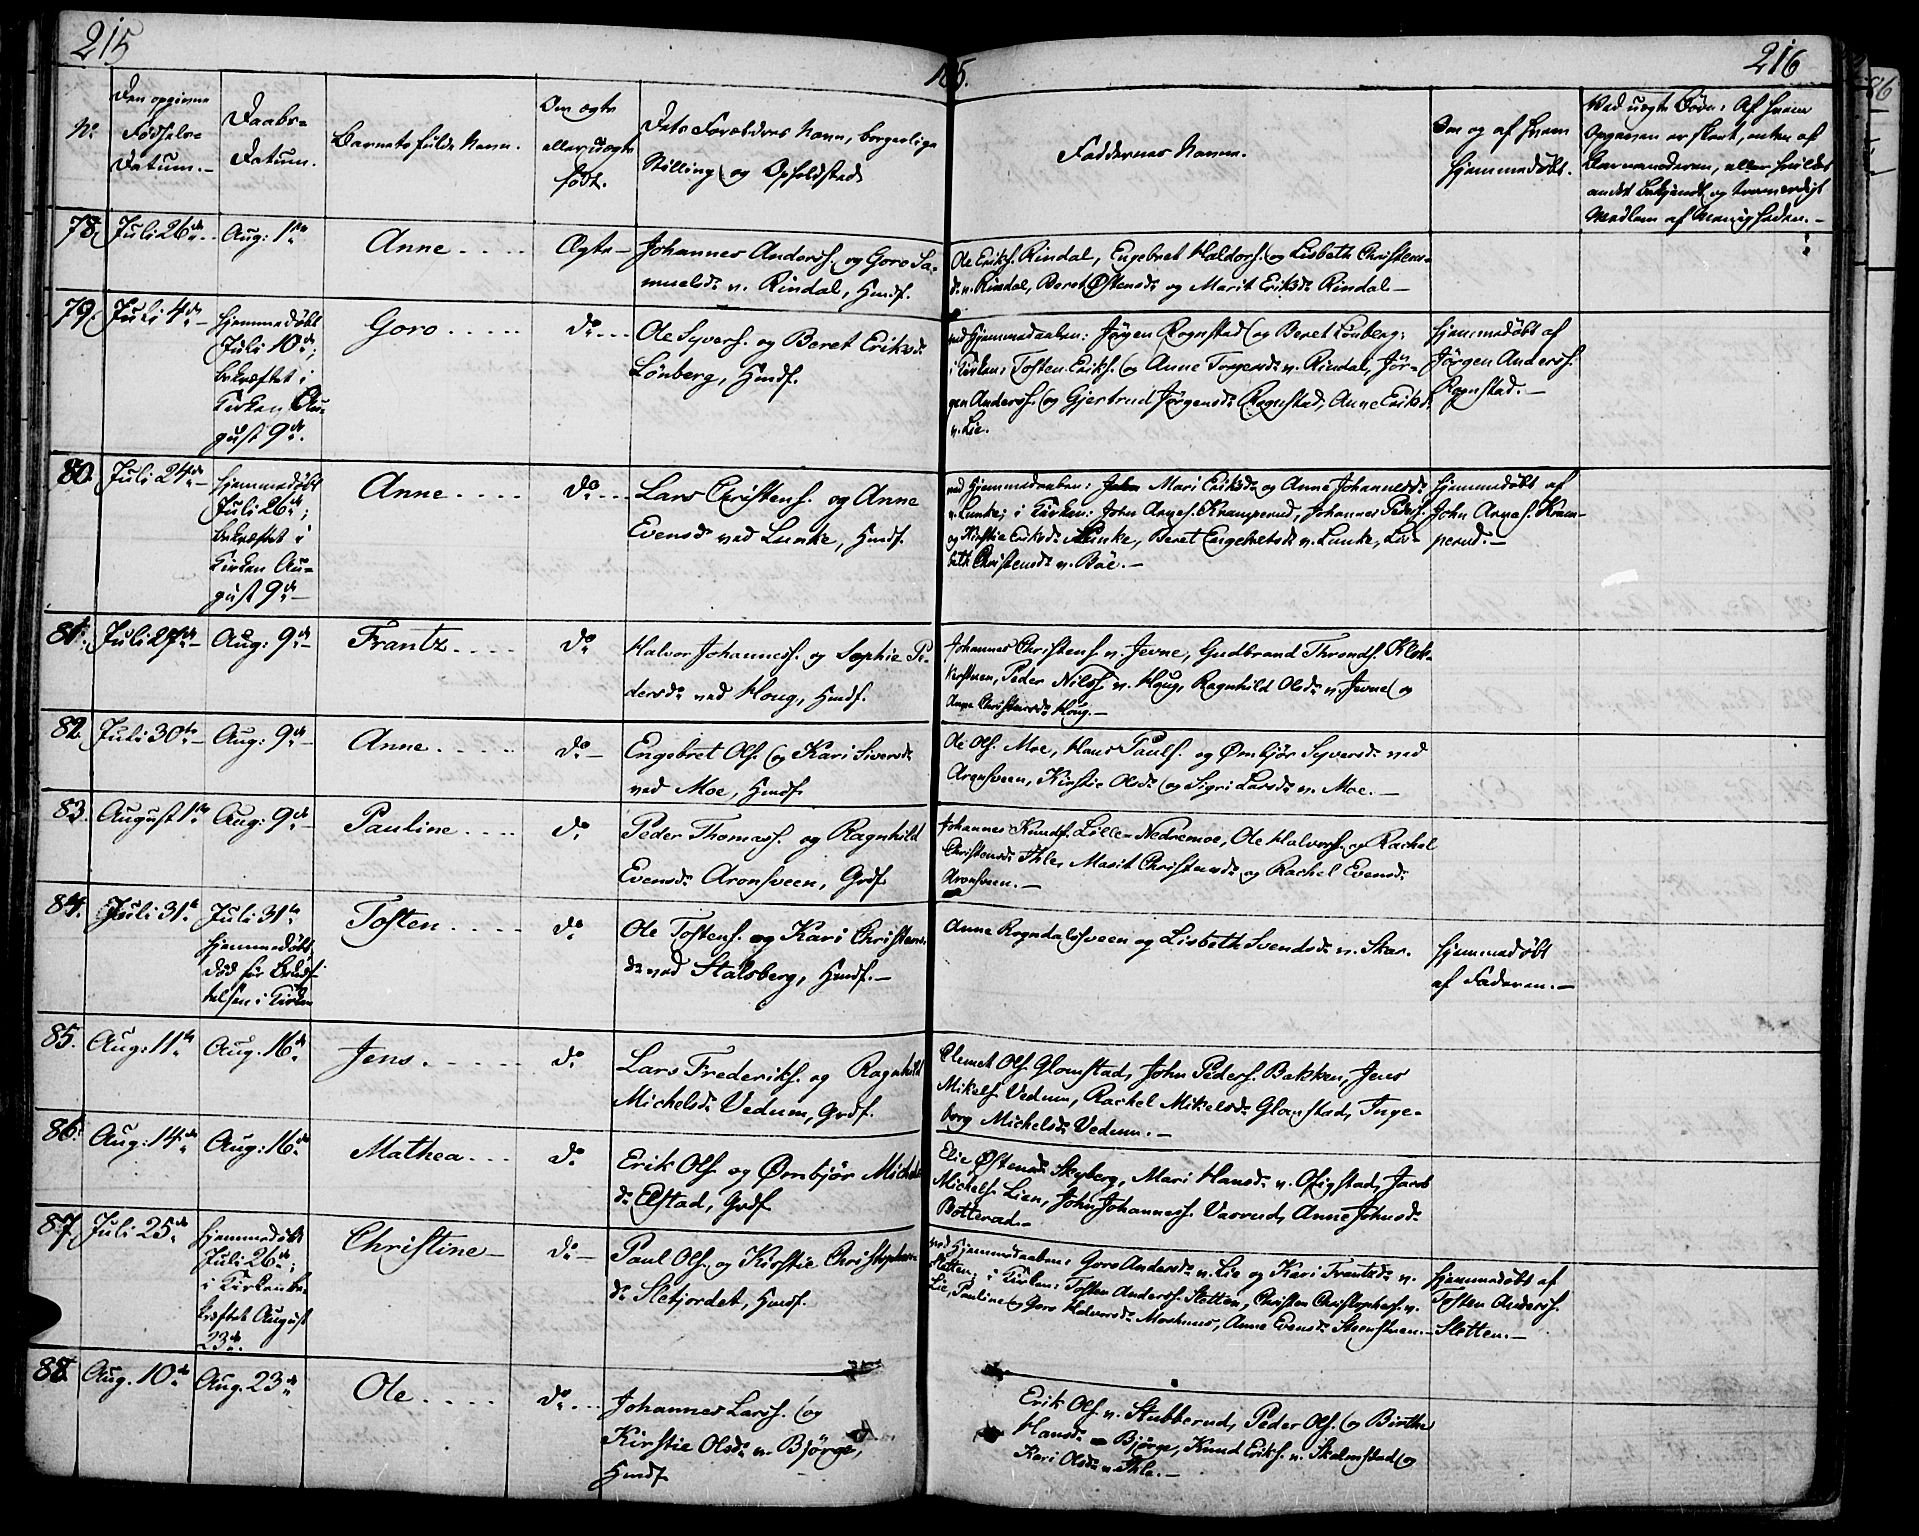 215
105.
216
No
Den opgivne
Fødsels-
Datum.
Daabs-
Datum.
Barnets fulde Navn.
Om ægte
eller uægte
født.
Dets Forældres Navn, borgerlige
Stilling og Opholdsted
Faddernes Navne.
Om og af hvem
hjemmedøbt.
Ved uægte Børn: Af hvem
Opgaven er skeet, enten af
Barnemoderen, eller hvilket
andet bekjendt og troværdigt
Medlem af Menigheden.
78. Juli 26de Aug: 1ste Anne Ægte
Johannes Anders. og Goro Sa-
muelsd: v. Rindal, Huusf.
Ole Eriks. Rindal, Engebret Haldors. og Lisbeth Christens-
d: v. Rindal, Beret Østensd: og Marit Eriksd: Rindal
79. Juli 4de
hjemmedøbt
Juli 10de;
bekræftet i
Kirken Au-
gust 9de.
Goro do
Ole Syvers. og Beret Eriksd:
Lønberg, Huusf.
ved Hjemmedaaben: Jørgen Rognstad og Beret Lønberg;
i Kirken: Tosten Eriks. og Anne Torgersd: v. Rindal, Jør-
gen Anders. og Gjertrud Jørgensd: Rognstad, Anne Eriksd:
v. Lie.
hjemmedøbt af
Jørgen Anders.
Rognstad.
80. Juli 24de
hjemmedøbt
Juli 26de;
bekræftet i
Kirken Au-
gust 9de
Anne do
Lars Christens. og Anne
Evensd: ved Lunke, Huusf.
ved Hjemmedaaben: Mari Eriksd: og Anne Johannesd:
v. Lunke; i Kirken: John Arnes. Kramperud, Johannes Peders.
og Kirstie Eriksd: Lunke, Beret Engebretsd: v. Lunke, Lis-
beth Christensd: v. Böe.
hjemmedøbt af
John Arnes. Kram-
perud.
81. Juli 27de Aug: 9de Frantz do
Halvor Johannes. og Sophie Pe-
dersd: ved Houg, Huusf.
Johannes Christens. v. Jevne, Gudbrand Thronds. Klok-
kersveen, Peder Nils. v. Houg, Ragnhild Olsd: v. Jevne og
Anne Christensd: Houg.
82. Juli 30te Aug: 9de Anne do
Engebret Ols. og Kari Siversd:
ved Moe, Huusf.
Ole Ols. Moe, Hans Pauls. og Ørnbjør Syversd: ved
Aronsveen, Kirstie Olsd: og Sigri Larsd: v. Moe.
83. August 1ste Aug: 9de Pauline do
Peder Thomas. og Ragnhild
Evensd: Aronsveen, Grdf.
Johannes Knuds. Lille-Nedremoe, Ole Halvors. og Rachel
Christensd: Ihle, Marit Christensd: og Rachel Evensd:
Aronsveen.
84. Juli 31te
Juli 31te
hjemmedøbt,
død før Bekræf-
telsen i Kirken
Tosten do
Ole Tostens. og Kari Christens-
d: ved Stalsberg, Huusf.
Anne Rogndalssveen og Lisbeth Svendsd: v. Skar.
hjemmedøbt
af Faderen.
85. Aug: 11te Aug. 16de Jens do
Lars Frederiks. og Ragnhild
Michelsd: Vedum, Grdf.
Clemet Ols. Glomstad, John Peders. Bakken, Jens
Mikels. Vedum, Rachel Mikelsd: Glomstad, Inge-
borg Michelsd: Vedum.
86. Aug: 14de Aug: 16de Mathea do
Erik Ols. og Ørnbjør Michels
d: Elstad, Grdf.
Elie Østensd: Skyberg, Mari Hansd: v. Ofigstad, Jacob
Michels. Lien, John Johannes. Vasrud, Anne Johnsd:
Botterud.
87. Juli 25de
hjemmedøbt
Juli 26de;
i Kirken be-
kræftet August
23de.
Christine do
Paul Ols. og Kirstie Christophers-
d: Sletjordet, Huusf.
ved Hjemmedaaben: Goro Andersd: v. Lie og Kari Frantsd: v.
Sletten; i Kirken: Tosten Anders. Sletten, Christen Christophers. v.
Lie, Pauline og Goro Halvorsd: Moshuus, Anne Evensd: Steensveen.
hjemmedøbt af
Tosten Anders.
Sletten.
88. Aug. 10de Aug. 23de Ole do
Johannes Lars. og
Kirstie Olsd: v. Bjørge,
Huusf.
Erik Ols. v. Stubberud, Peder Ols. og Birthe
Hansd: Bjørge, Knud Eriks. v. Skalmstad og
Kari Olsd: v. Ihle.
86